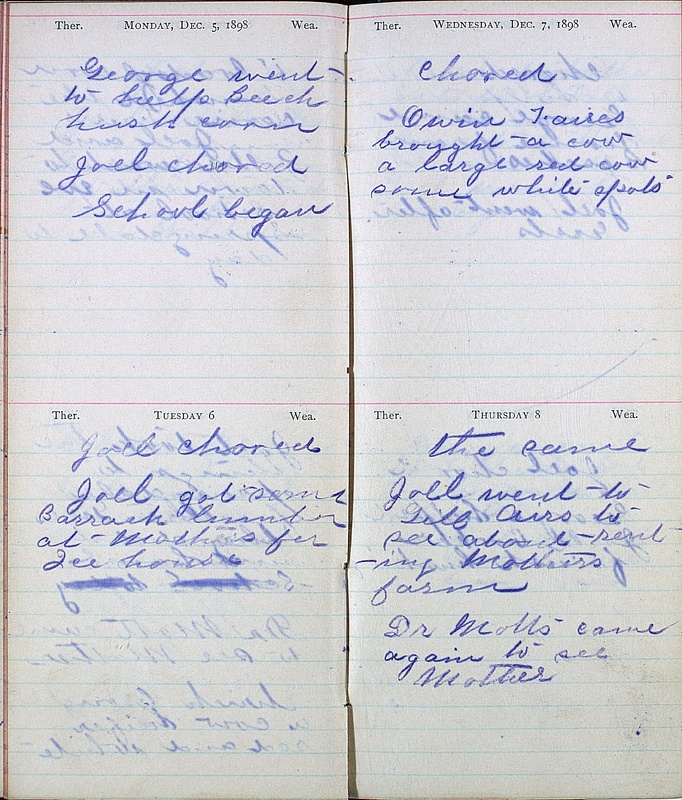 Ther. MONDAY, DEC. 5, 1898 Wea.
George went
to help Beech
husk corn
Joel chored
School began
Ther. TUESDAY 6 Wea.
Joel chored
Joel got some
Barrack lumber
at Mothers for
Ice house
Ther. WEDNESDAY, DEC. 7, 1898 Wea.
Chored
Owin
brought a cow
a large red cow
some white spots
Ther. THURSDAY 8 Wea.
the same
Joel went to
to
see about rent
-ing Mothers
farm
Dr Motts came
again to see
Mother